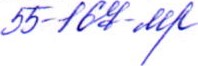 55-167-мр